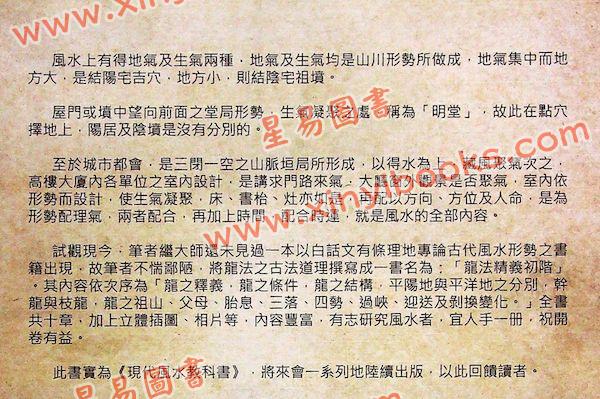 風水上有得地氣及生氣兩種，地氣及生氣均是山川形勢所做成，地氣集中而地
方大，是結陽宅吉穴，地方小，則結陰宅祖墳。
屋門或墳中望向前面之堂局形勢，生氣凝聚之處，稱為「明堂」，故此在點穴
擇地上，陽居及陰墳是沒有分別的。
至於城市都會，是三閉一空之山脈垣局所形成，以得水為上，藏風形氣次之，
高樓大廈內各單位之室內設計，是講求門路來氣，大廳
是否聚氣，室內依
形勢而設計，使生氣凝聚，床、書枱、灶亦如是，再配以方向、方位及人命，是為
形勢配理氣，兩者配合，再加上時間，配合時運，就是風水的全部內容。
試觀現今，筆者繼大師還未見過一本以白話文有條理地專論古代風水形勢之書
籍出現，故筆者不惴鄙陋，將龍法之古法道理撰寫成一書名為：「龍法精義初階」
。其內容依次序為「龍之釋義，龍之條件，龍之結構，平陽地與平洋地之分別，幹
龍與枝龍，龍之祖山、父母、胎息、三落、四勢、過峽、迎送及剝換變化。」全書
共十章，加上立體插圖、相片等，內容豐富，有志研究風水者，宜人手一冊，祝開
卷有益。
此書實為《現代風水教科書》，將來會一系列地陸續出版，以此回饋讀者。
星易圖書
www.xinyibooks.com